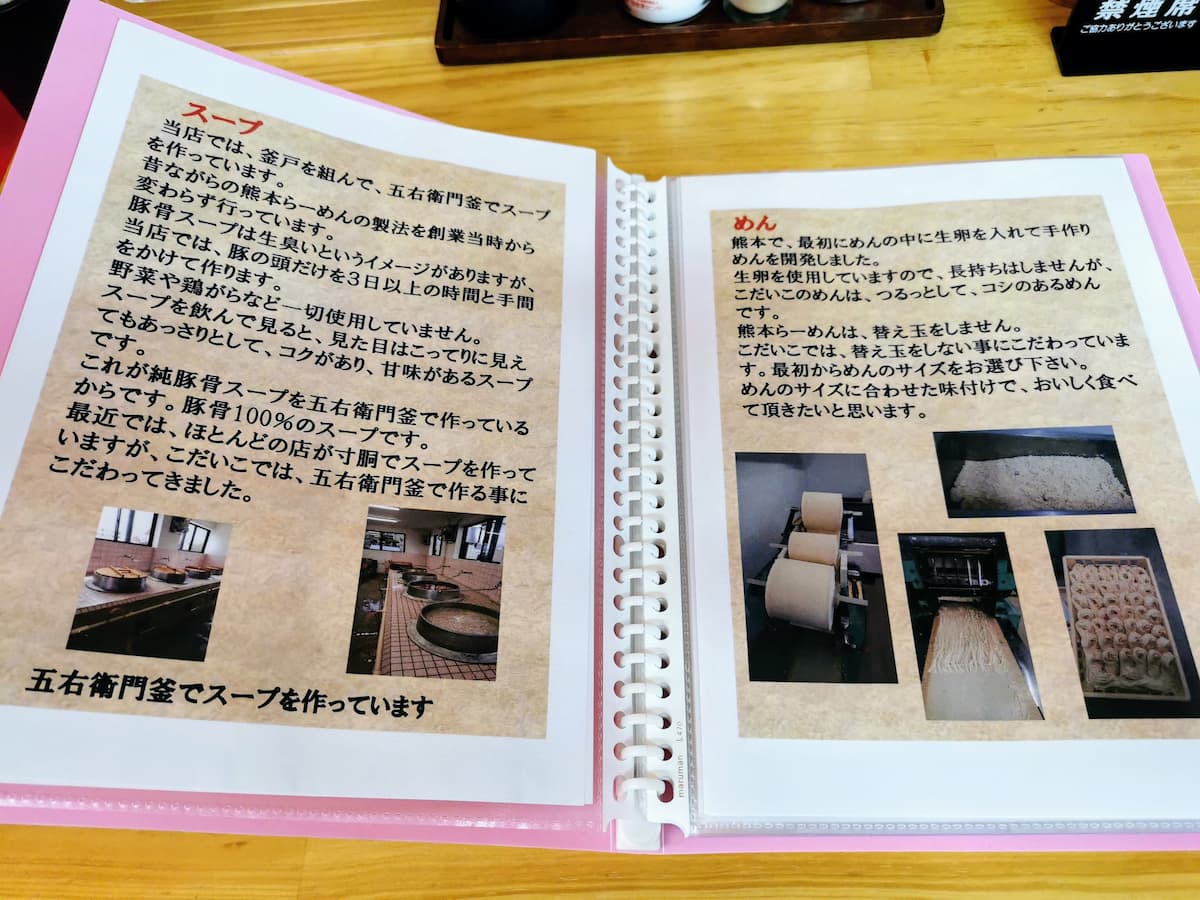 禁煙席
ご協力ありがとうございます
スープ
当店では、釜戸を組んで、五右衛門釜でスープ
を作っています。
昔ながらの熊本らーめんの製法を創業当時から
変わらず行っています。
豚骨スープは生臭いというイメージがありますが、
当店では、豚の頭だけを3日以上の時間と手間
をかけて作ります。
野菜や鶏がらなど一切使用していません。
スープを飲んで見ると、見た目はこってりに見え
てもあっさりとして、コクがあり、甘味があるスープ
です。
これが純豚骨スープを五右衛門釜で作っている
からです。豚骨100%のスープです。
最近では、ほとんどの店が寸胴でスープを作って
いますが、こだいこでは、五右衛門釜で作る事に
こだわってきました。
五右衛門釜でスープを作っています
めん
熊本で、最初にめんの中に生卵を入れて手作り
めんを開発しました。
生卵を使用していますので、長持ちはしませんが、
こだいこのめんは、つるっとして、コシのあるめん
です。
熊本らーめんは、替え玉をしません。
こだいこでは、替え玉をしない事にこだわっていま
す。最初からめんのサイズをお選び下さい。
めんのサイズに合わせた味付けで、おいしく食べ
て頂きたいと思います。
maruman L470